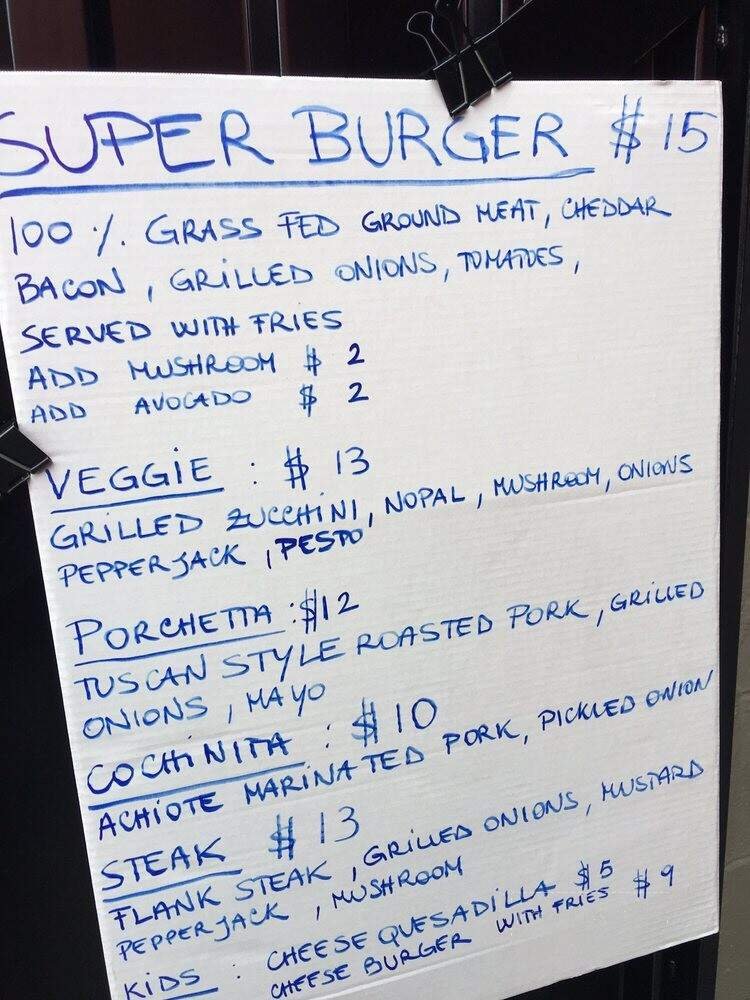 SUPER BURGER $ 15
100 % GRASS FED GROUND MEAT, CHEDDAR
BACON, GRILLED ONIONS, TOMATOES,
SERVED WITH FRIES
ADD MUSHROOM $ 2
ADD AVOCADO $ 2
VEGGIE : $ 13
GRILLED ZUCCHINI, NOPAL, MUSHROOM, ONIONS
PEPPER JACK, PESTO
PORCHETTA : $12
TUSCAN STYLE ROASTED PORK, GRILLED
ONIONS, MAYO
COCHINITA : $ 10
ACHIOTE MARINATED PORK, PICKLED ONION
STEAK $ 13
FLANK STEAK, GRILLED ONIONS, MUSTARD
PEPPER JACK, MUSHROOM
KIDS : CHEESE QUESADILLA $ 5
CHEESE BURGER WITH FRIES $ 9